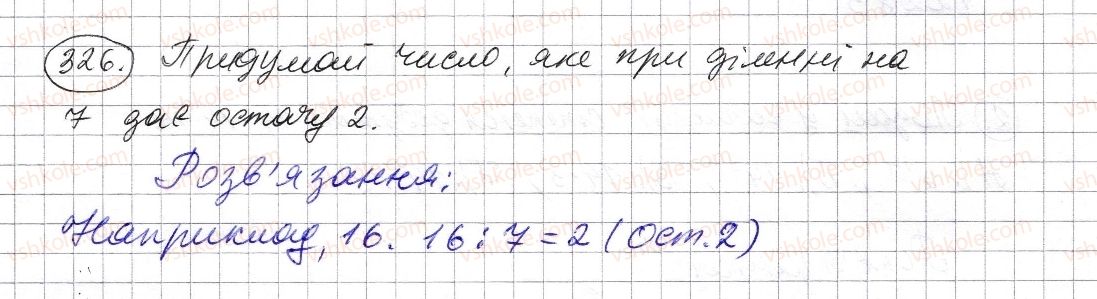 326. Придумай число, яке при діленні на
7 дає остачу 2.
Розв'язання:
Наприклад, 16. 16 : 7 = 2 (Ост. 2)